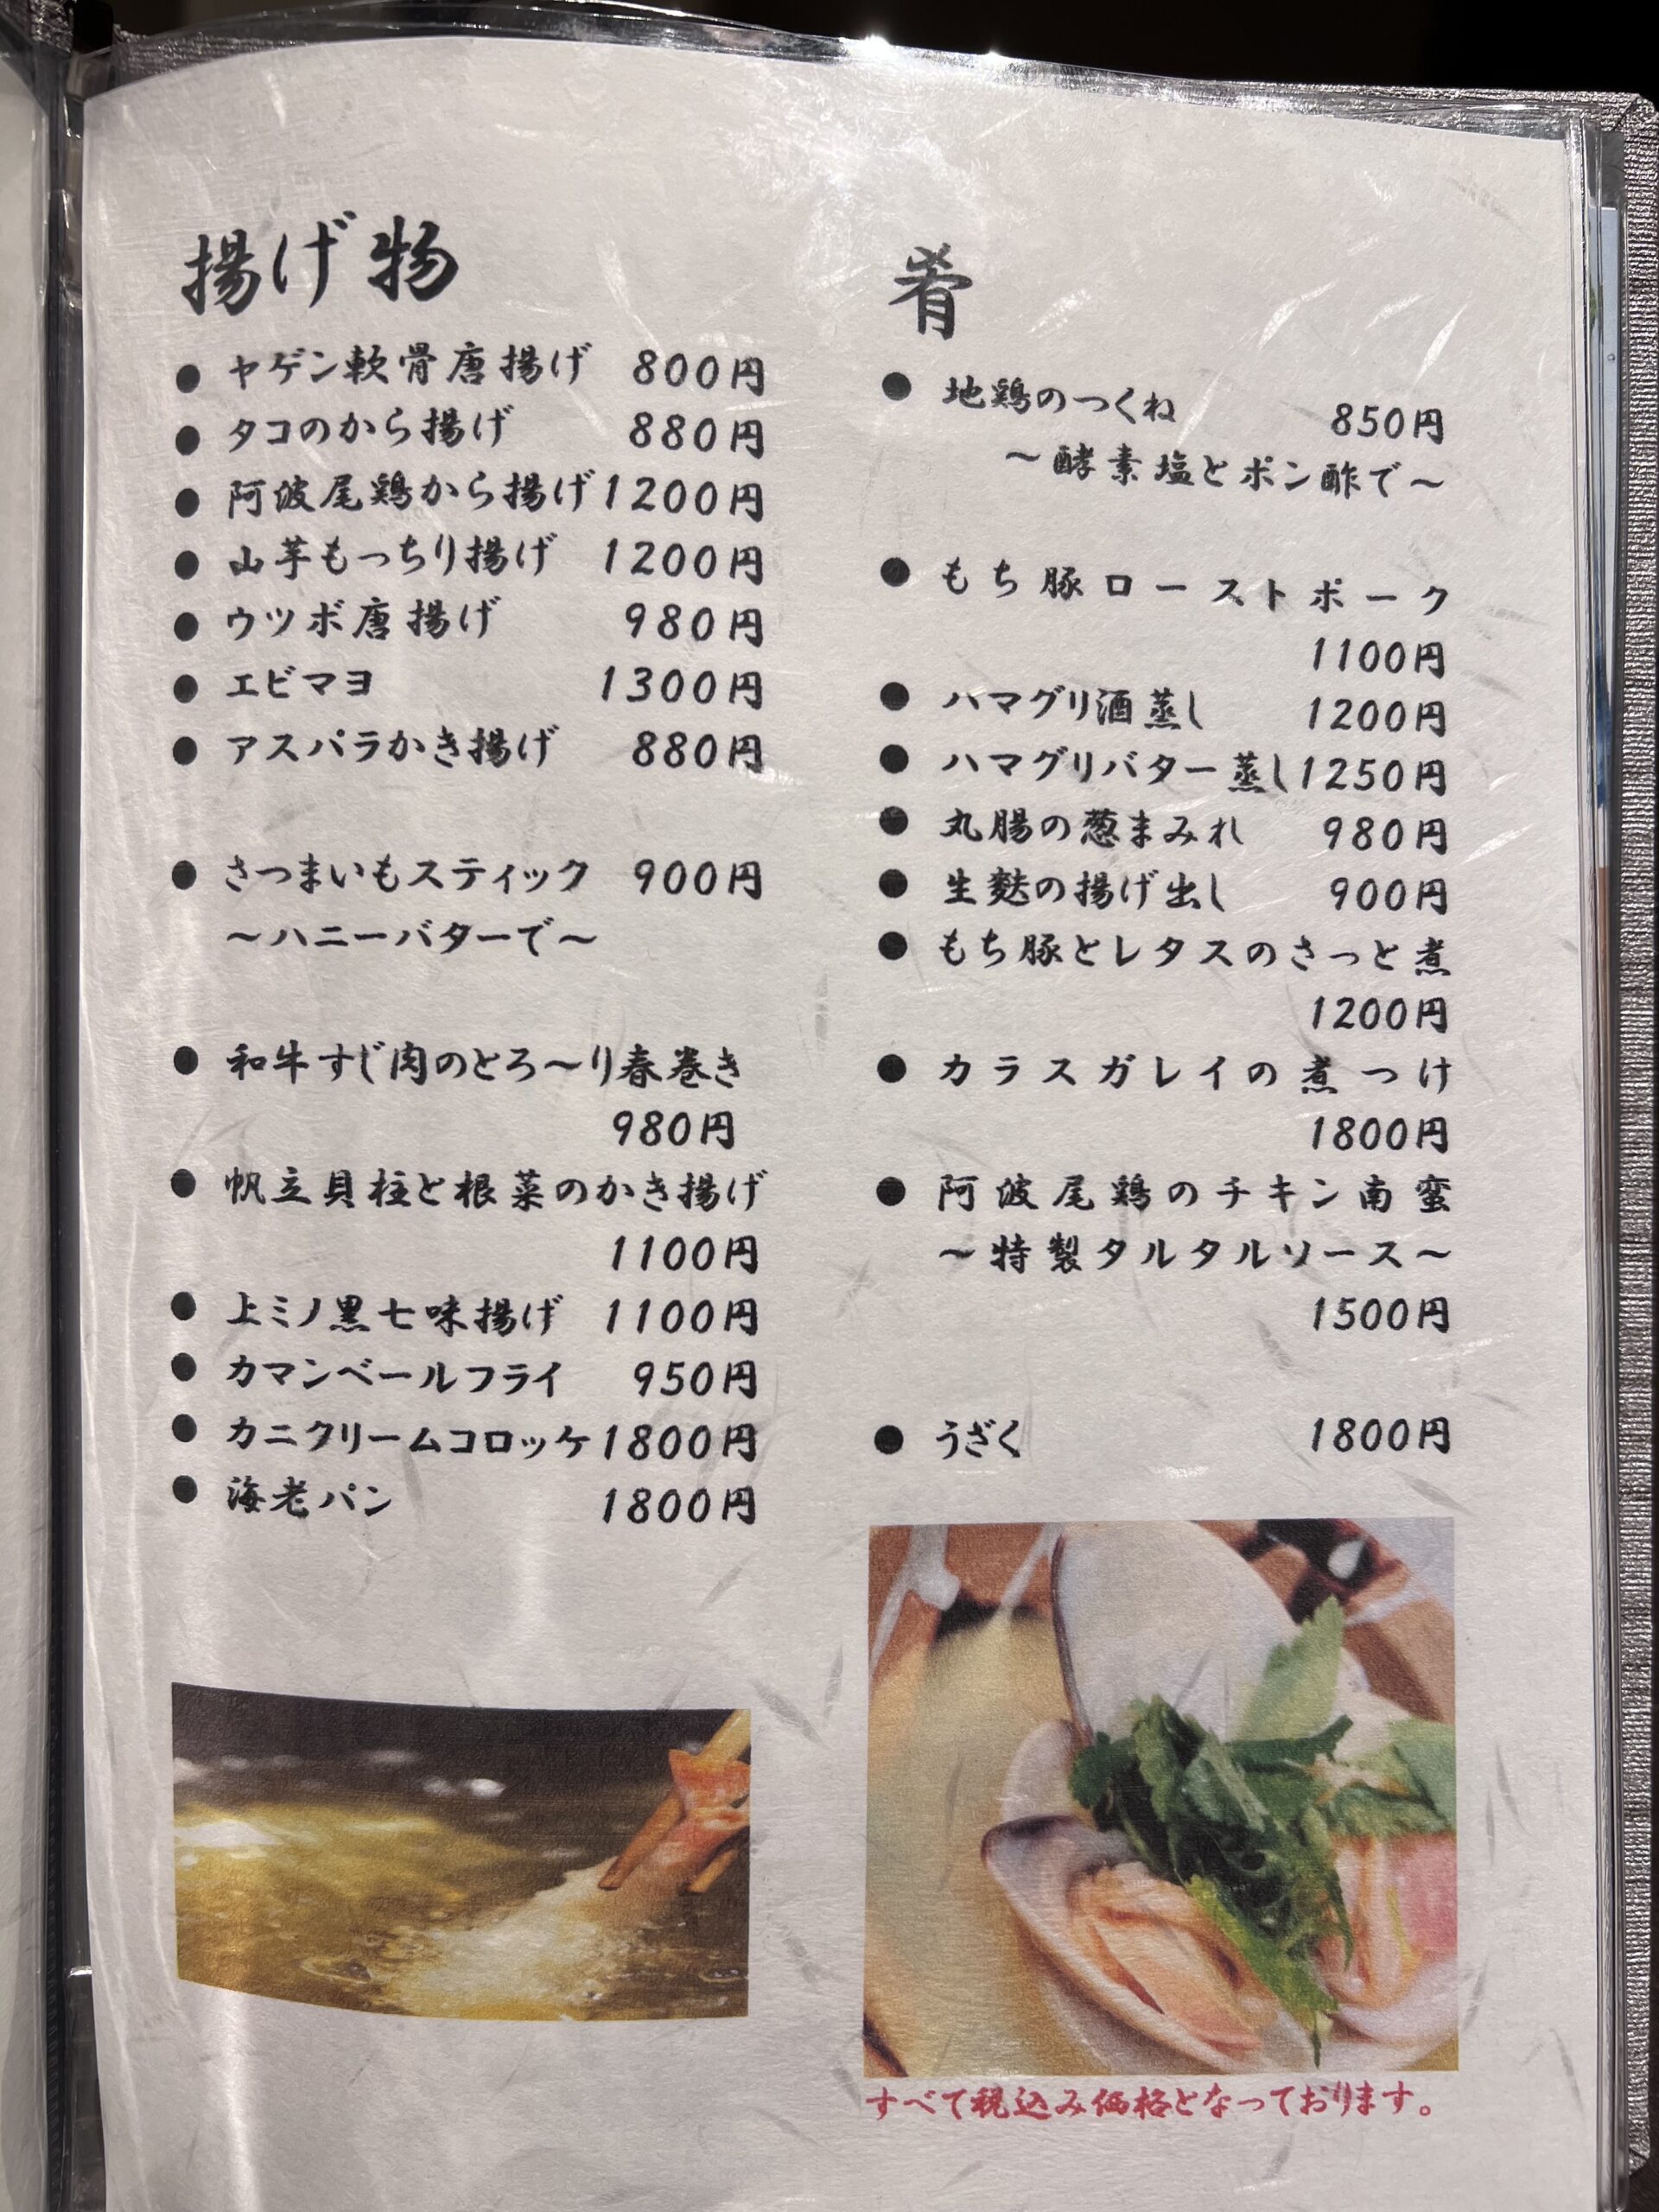 揚げ物
● ヤゲン軟骨唐揚げ 800円
● タコのから揚げ 880円
● 阿波尾鶏から揚げ 1200円
● 山芋もっちり揚げ 1200円
● ウツボ唐揚げ 980円
● エビマヨ 1300円
● アスパラかき揚げ 880円
● さつまいもスティック 900円
～ハニーバターで～
● 和牛すじ肉のとろ～り春巻き
980円
● 帆立貝柱と根菜のかき揚げ
1100円
● 上ミノ黒七味揚げ 1100円
● カマンベールフライ 950円
● カニクリームコロッケ 1800円
● 海老パン 1800円
肴
● 地鶏のつくね 850円
～酵素塩とポン酢で～
● もち豚ローストポーク
1100円
● ハマグリ酒蒸し 1200円
● ハマグリバター蒸し 1250円
● 丸腸の葱まみれ 980円
● 生麩の揚げ出し 900円
● もち豚とレタスのさっと煮
1200円
● カラスガレイの煮つけ
1800円
● 阿波尾鶏のチキン南蛮
～特製タルタルソース～
1500円
● うざく 1800円
すべて税込み価格となっております。